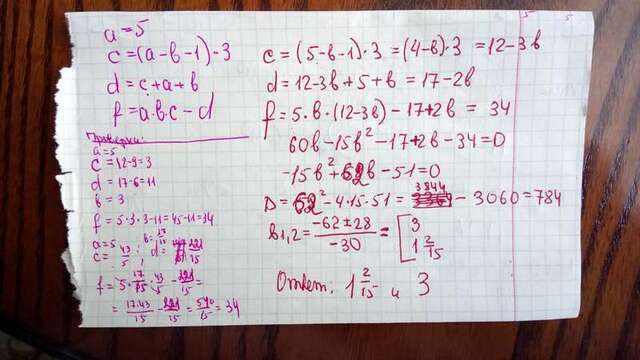 a=5
c=(a-в-1)·3
d=c+a+в
f=a·в·c-d
Проверка:
a=5
c=12-9=3
d=17-6=11
в=3
f=5·3·3-11=45-11=34
a=5 в=17/15
c=43/5; d=221/15
f=5·17/15·43/5-221/15=
=17·43/15-221/15=510/15=34
c=(5-в-1)·3=(4-в)·3=12-3в
d=12-3в+5+в=17-2в
f=5·в·(12-3в)-17+2в=34
60в-15в²-17+2в-34=0
-15в²+62в-51=0
D=62²-4·15·51=3844-3060=784
в1,2=(-62±28)/-30=[3
1 2/15
Ответ: 1 2/15 и 3